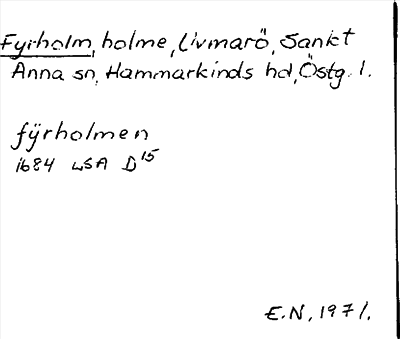 Fyrholm, holme, Livmarö, Sankt
Anna sn, Hammarkinds hd, Östg. l.
fÿrholmen
1684 LSA D 15
E.N, 1971.